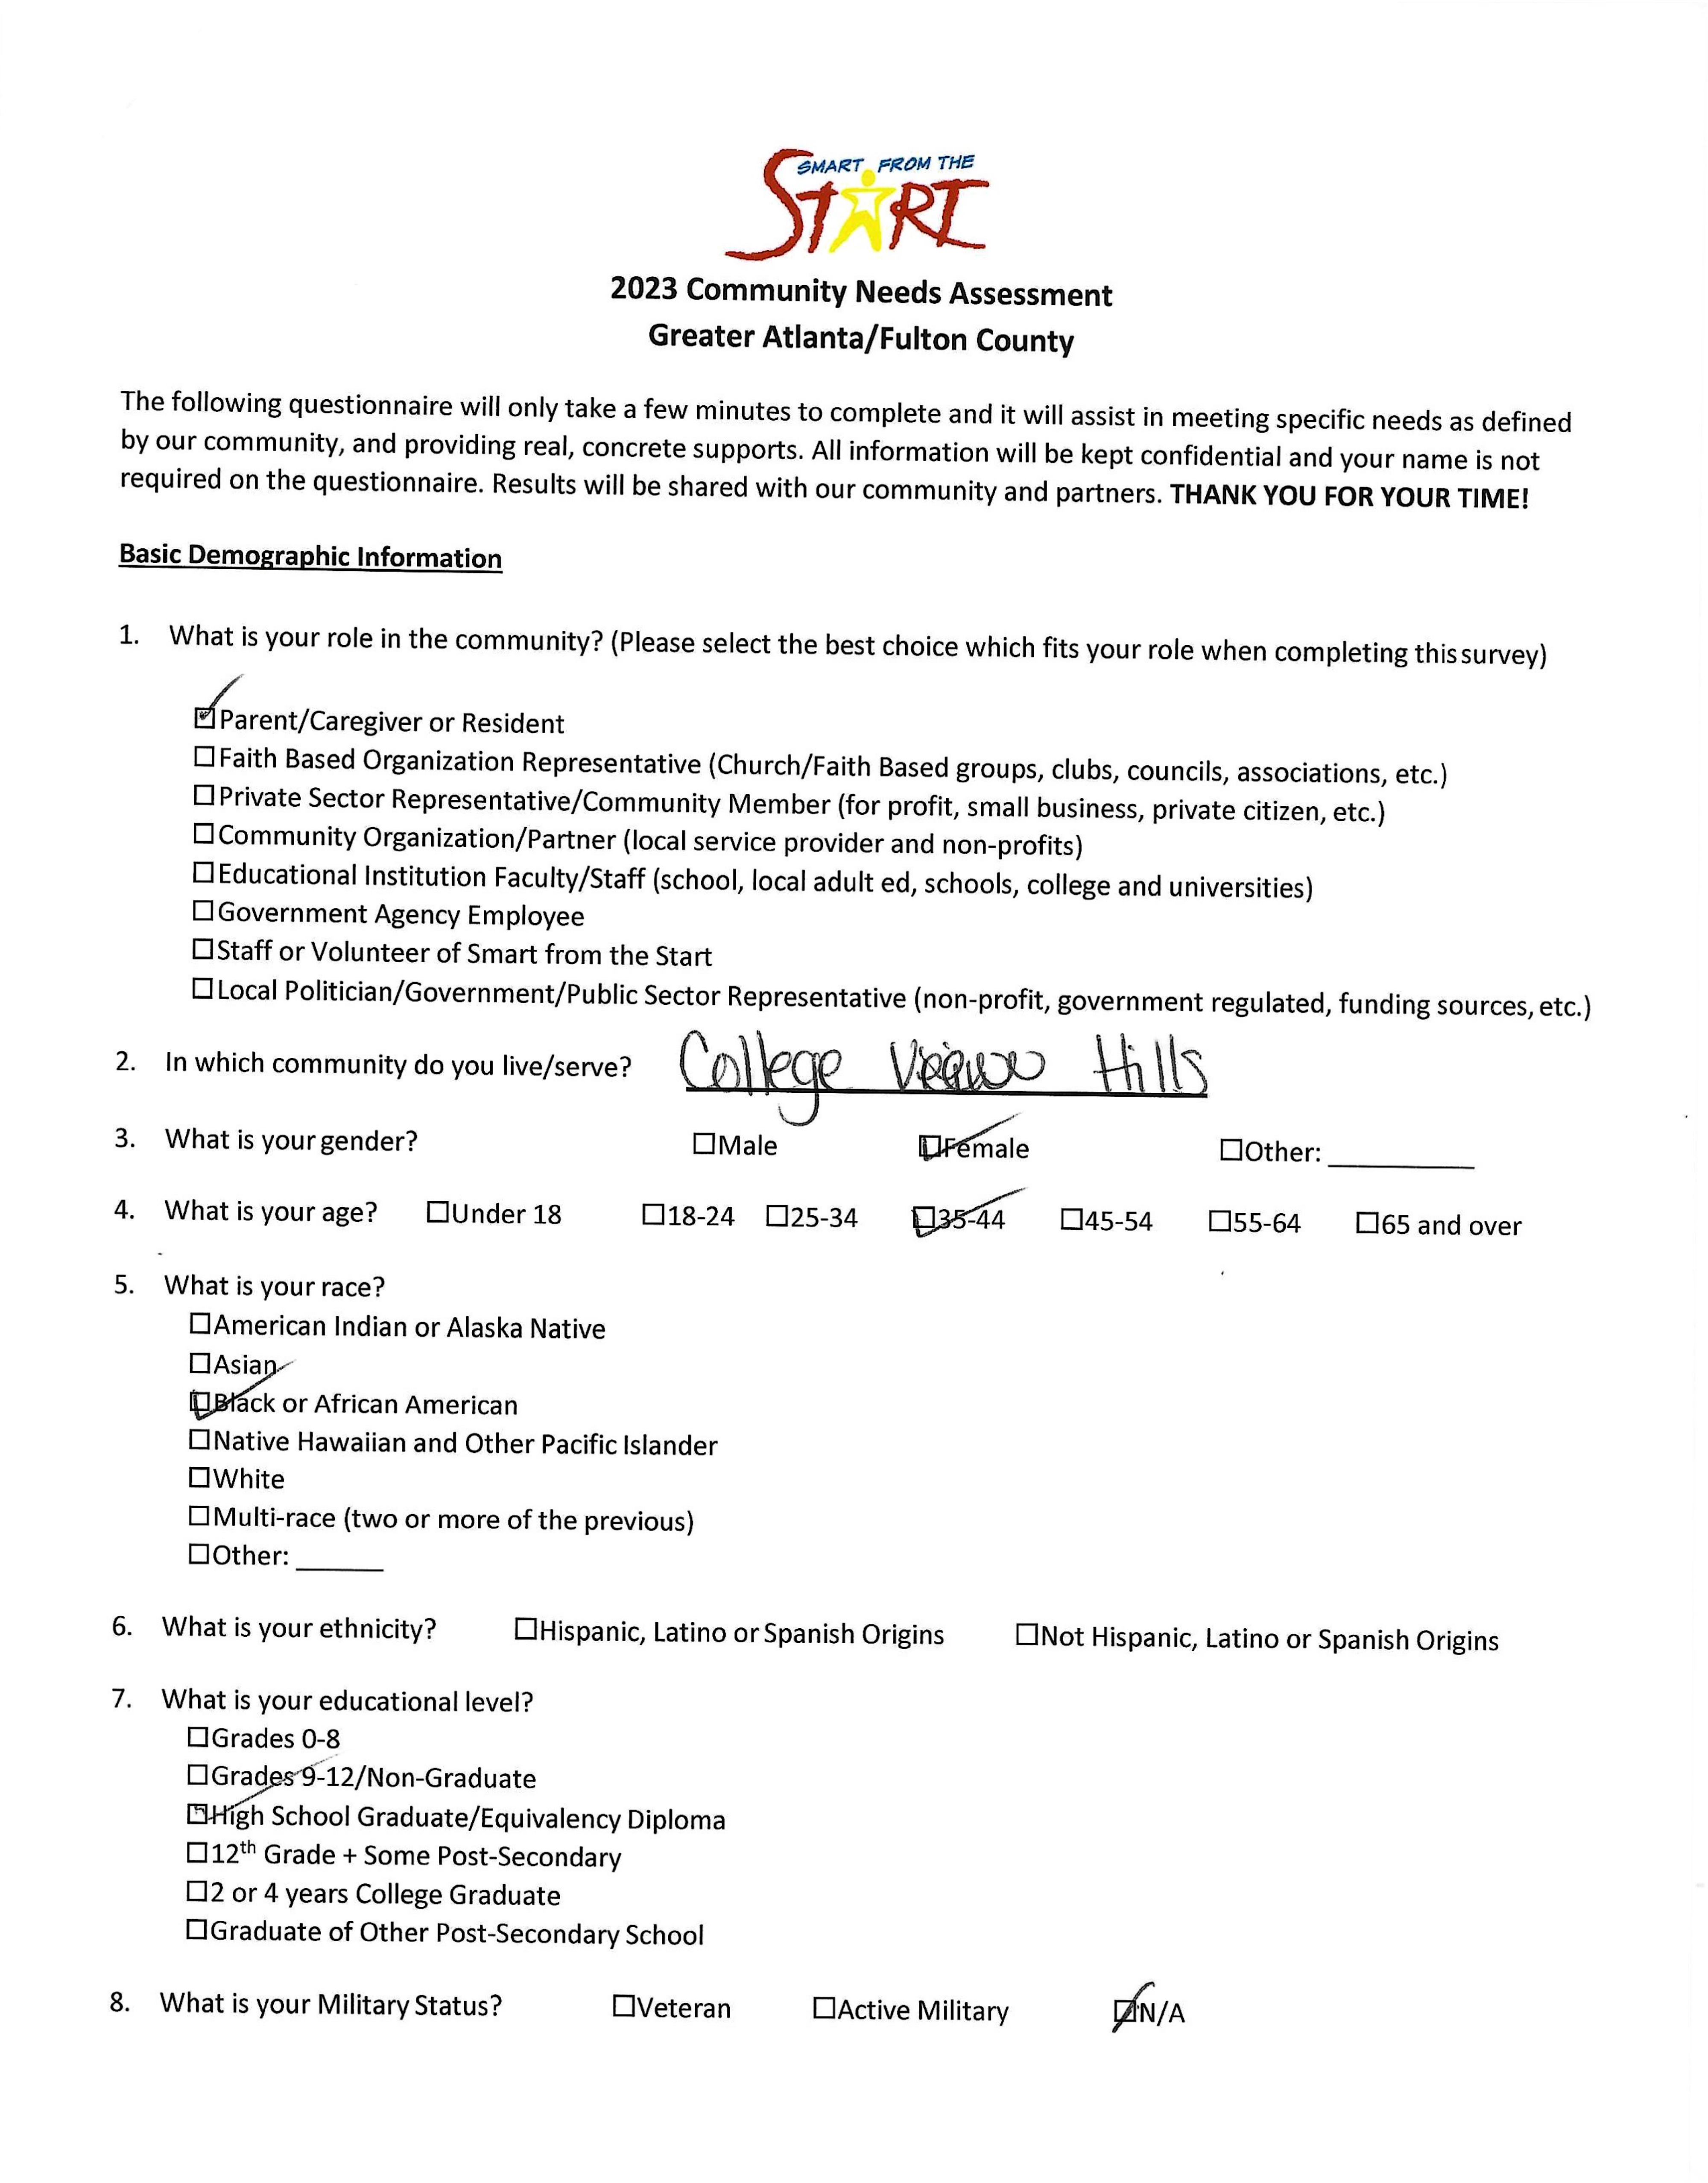 SMART FROM THE
START
2023 Community Needs Assessment
Greater Atlanta/Fulton County
The following questionnaire will only take a few minutes to complete and it will assist in meeting specific needs as defined
by our community, and providing real, concrete supports. All information will be kept confidential and your name is not
required on the questionnaire. Results will be shared with our community and partners. THANK YOU FOR YOUR TIME!
Basic Demographic Information
1. What is your role in the community? (Please select the best choice which fits your role when completing this survey)
☑Parent/Caregiver or Resident
☐Faith Based Organization Representative (Church/Faith Based groups, clubs, councils, associations, etc.)
☐Private Sector Representative/Community Member (for profit, small business, private citizen, etc.)
☐Community Organization/Partner (local service provider and non-profits)
☐Educational Institution Faculty/Staff (school, local adult ed, schools, college and universities)
☐Government Agency Employee
☐Staff or Volunteer of Smart from the Start
☐Local Politician/Government/Public Sector Representative (non-profit, government regulated, funding sources, etc.)
2. In which community do you live/serve? College Hills
3. What is your gender? ☐Male ☑Female ☐Other: ________
4. What is your age? ☐Under 18 ☐18-24 ☐25-34 ☑35-44 ☐45-54 ☐55-64 ☐65 and over
5. What is your race?
☐American Indian or Alaska Native
☐Asian
☑Black or African American
☐Native Hawaiian and Other Pacific Islander
☐White
☐Multi-race (two or more of the previous)
☐Other: ______
6. What is your ethnicity? ☐Hispanic, Latino or Spanish Origins ☐Not Hispanic, Latino or Spanish Origins
7. What is your educational level?
☐Grades 0-8
☐Grades 9-12/Non-Graduate
☑High School Graduate/Equivalency Diploma
☐12th Grade + Some Post-Secondary
☐2 or 4 years College Graduate
☐Graduate of Other Post-Secondary School
8. What is your Military Status? ☐Veteran ☐Active Military ☑N/A